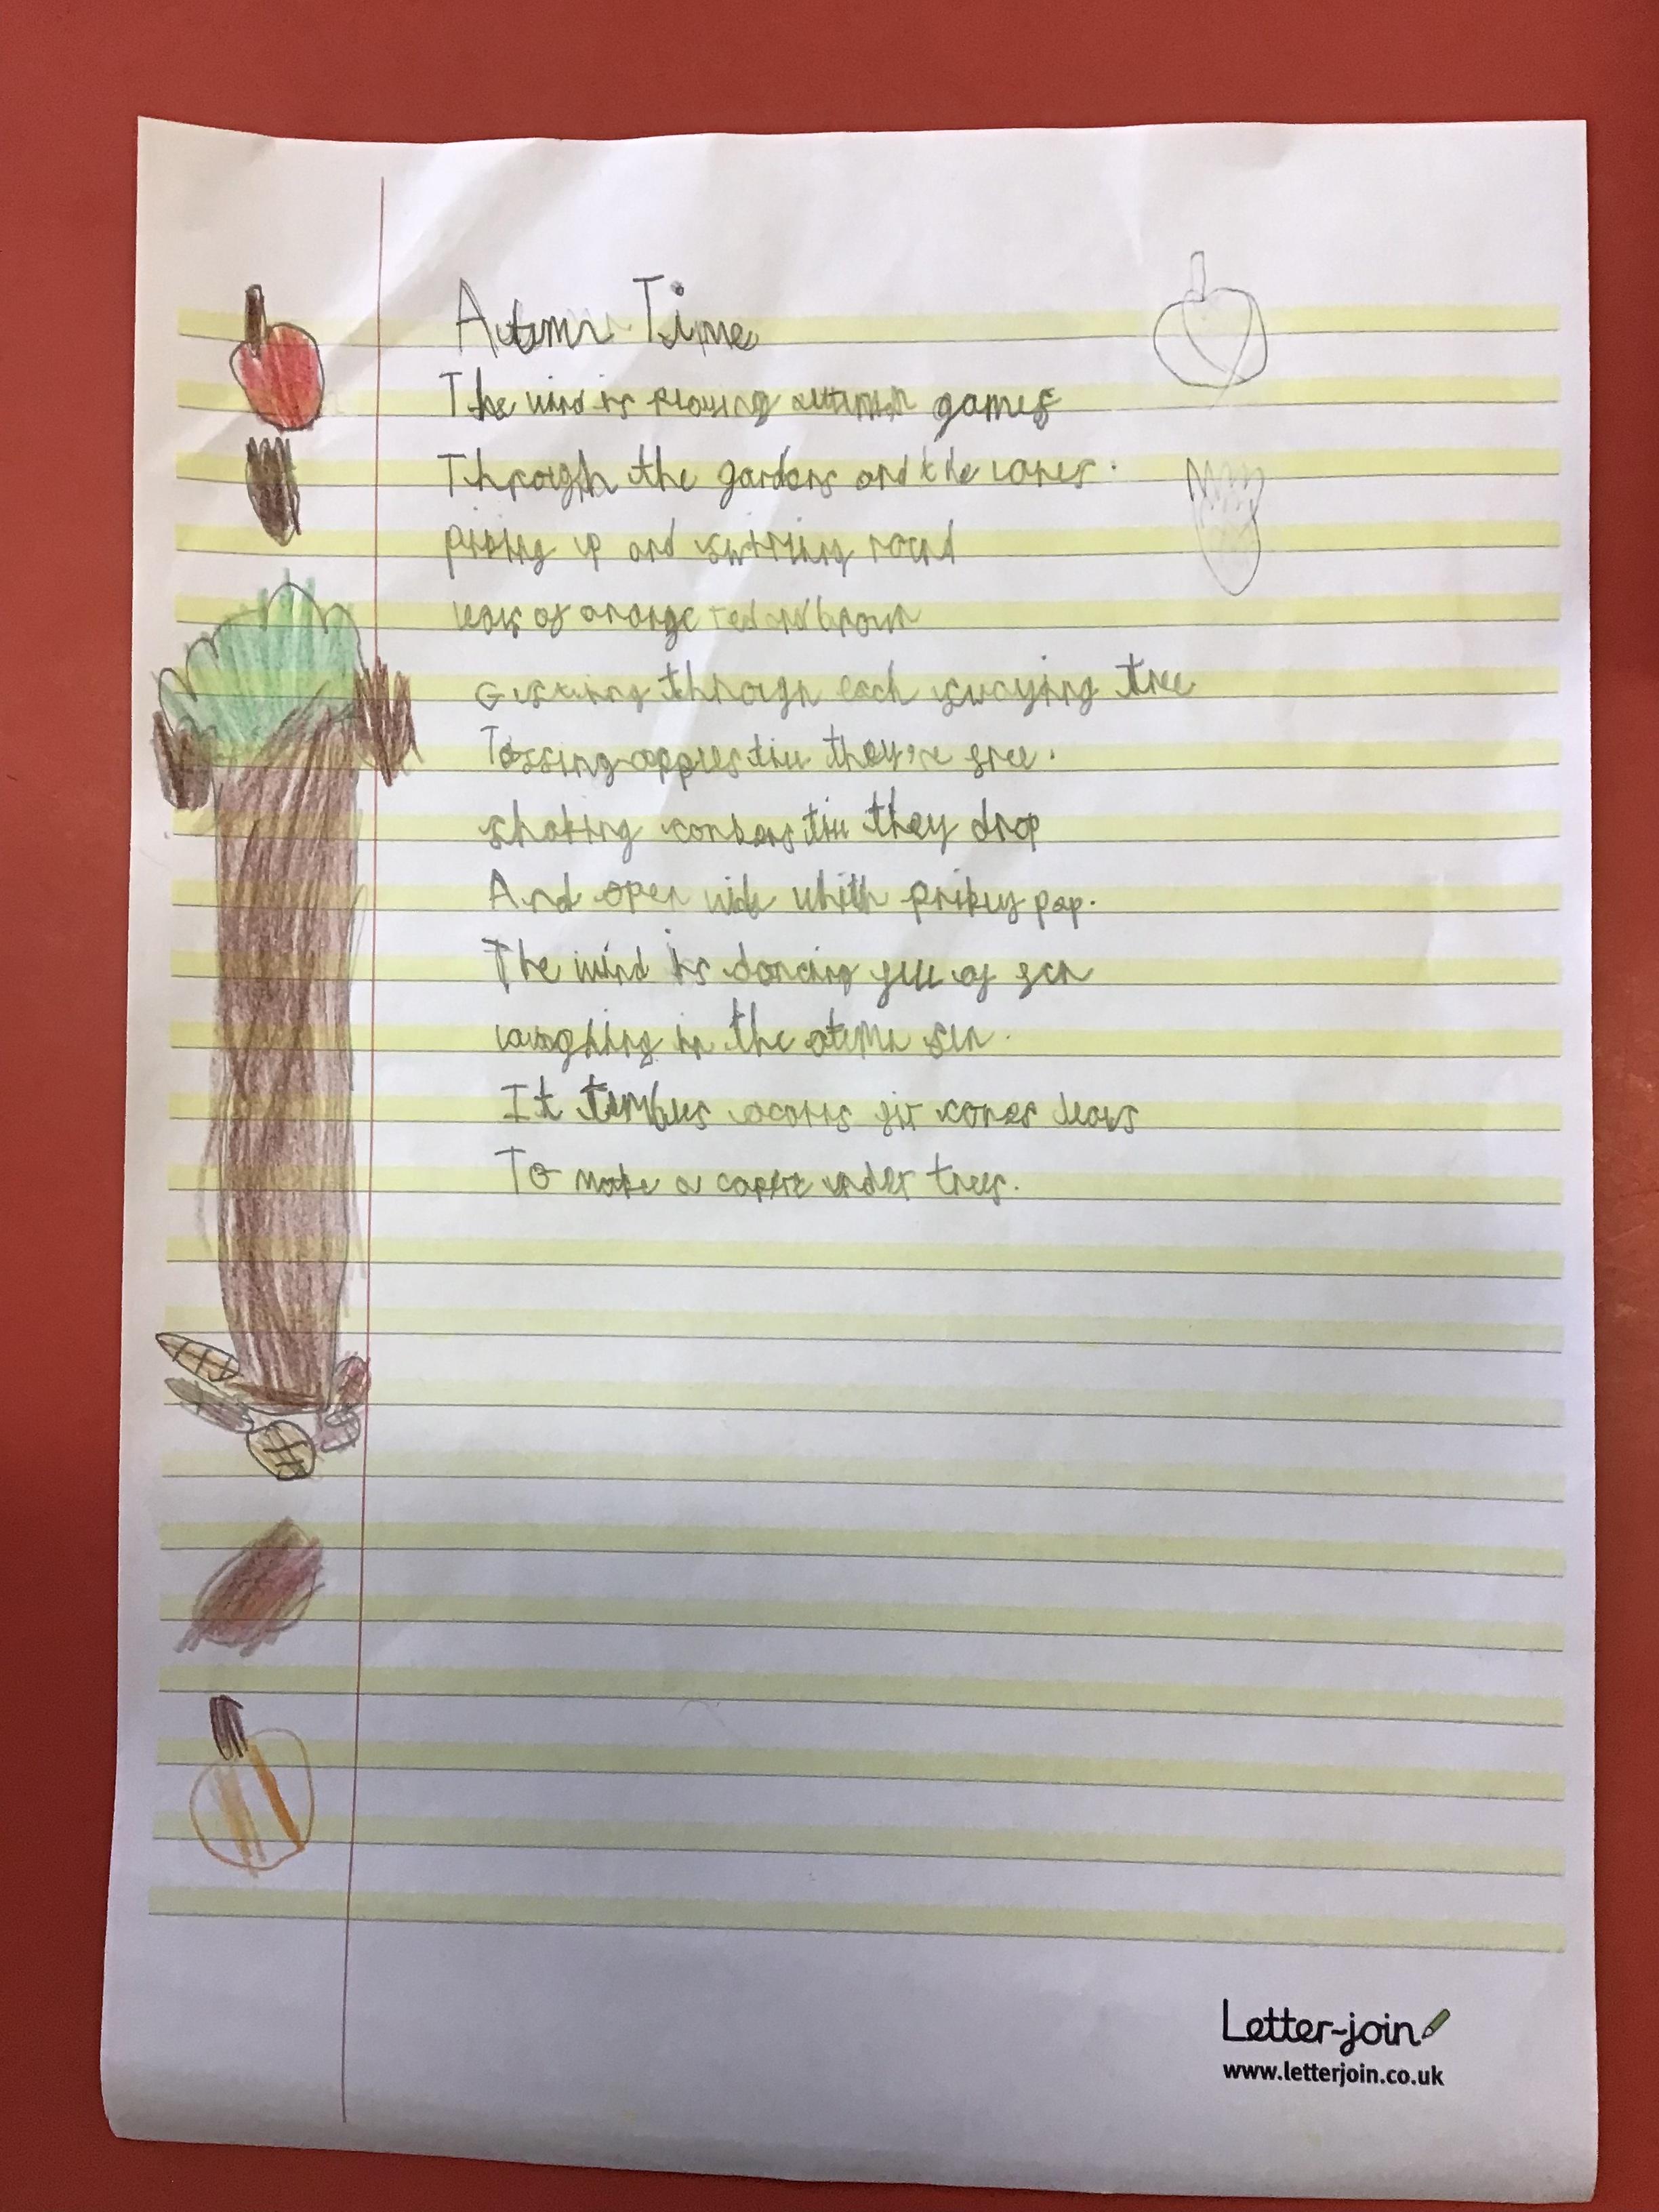 Autumn Time
The wind is playing autumn games
Through the gardens and the lanes.
piking up and swirling round
leavs of orange red and brown
Gusting through each swaying tree
Tossing apples till they're free.
shaking conkers till they drop
And open wide whith prikly pop.
The wind is dancing full of fun
laughing in the atumn sun.
It tumbles acorns fir cones leavs
To make a carpet under trees.
Letter-join
www.letterjoin.co.uk